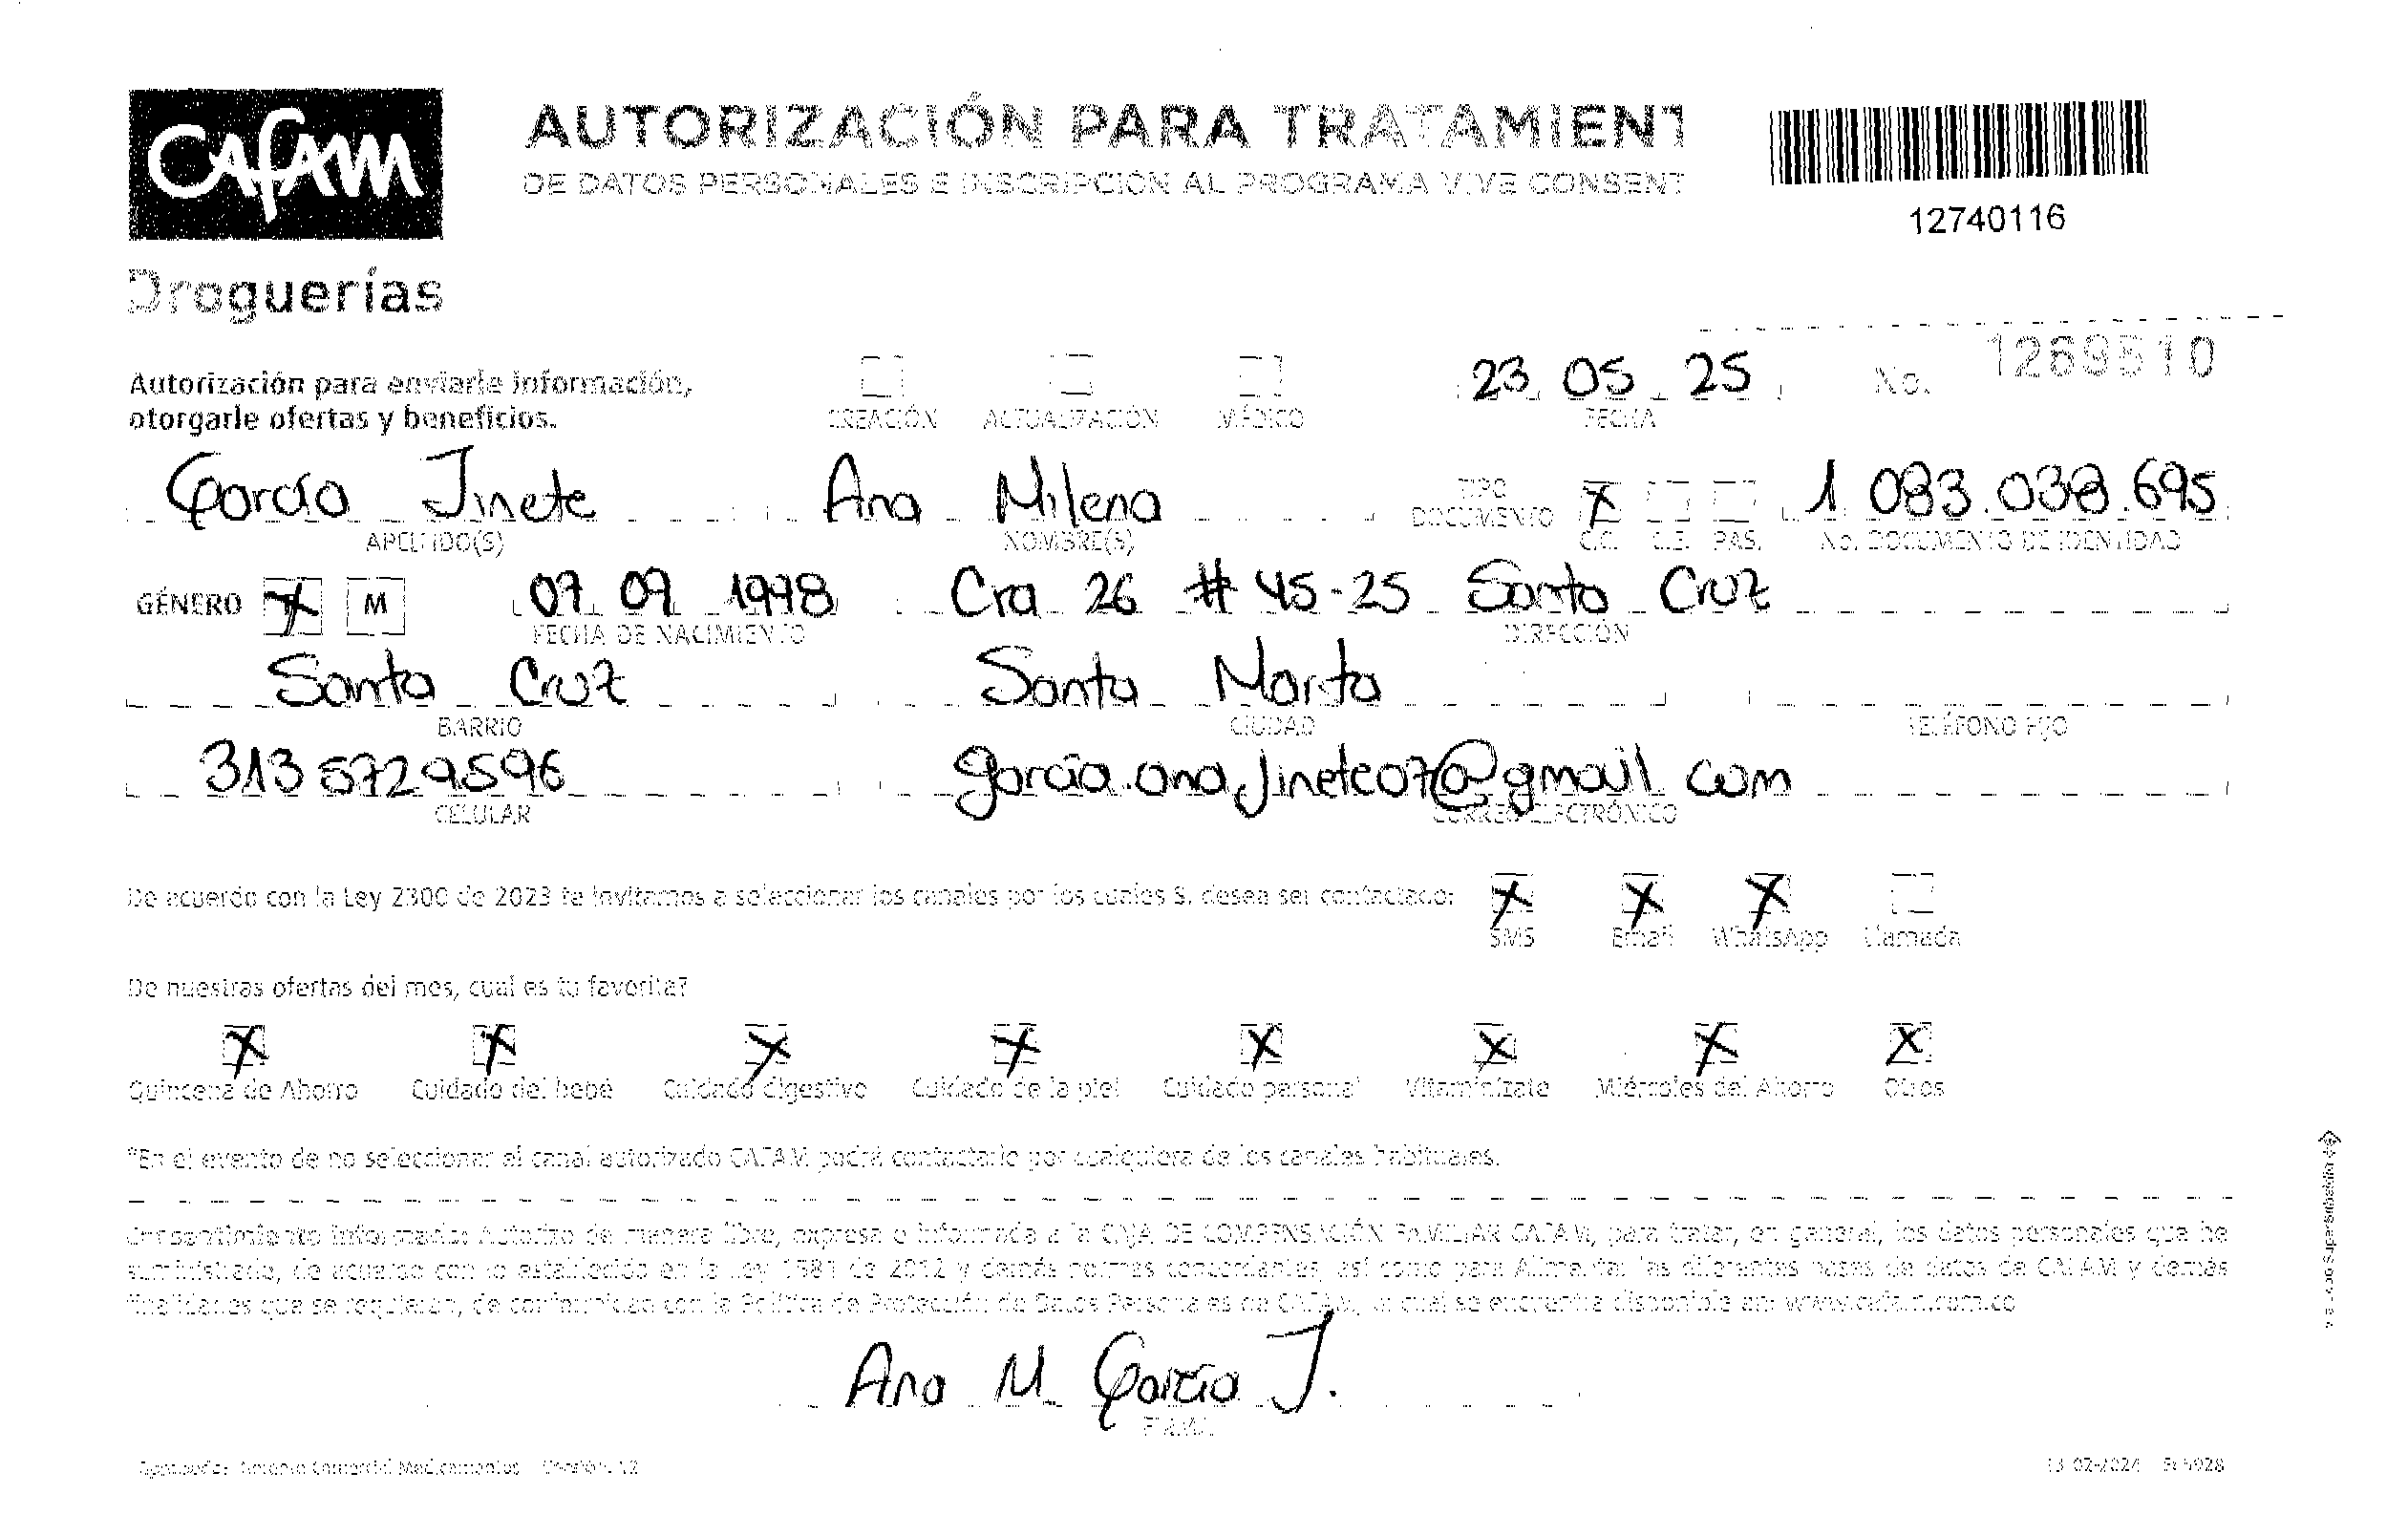 CAFAM
Droguerías
AUTORIZACIÓN PARA TRATAMIENT
DE DATOS PERSONALES E INSCRIPCIÓN AL PROGRAMA VIVE CONSENT
12740116
Autorización para enviarle información,
otorgarle ofertas y beneficios.
CREACIÓN ACTUALIZACIÓN MÉDICO
23 05 25
FECHA
No. 1269510
García Jinete Ana Milena
APELLIDO(S) NOMBRE(S)
TIPO DOCUMENTO X C.C. C.E. PAS. 1 083.038.695
No. DOCUMENTO DE IDENTIDAD
GÉNERO X M 07 09 1998 Cra 26 # 45-25 Santa Cruz
FECHA DE NACIMIENTO DIRECCIÓN
Santa Cruz Santa Marta
BARRIO CIUDAD TELÉFONO FIJO
313 5729596 garcia.ana.jinete07@gmail com
CELULAR CORREO ELECTRÓNICO
De acuerdo con la Ley 2300 de 2023 te invitamos a seleccionar los canales por los cuales SI desea ser contactado: X X X
SMS Email WhatsApp Llamada
De nuestras ofertas del mes, cual es tu favorita?
X X X X X X X X
Quincena de Ahorro Cuidado del bebé Cuidado digestivo Cuidado de la piel Cuidado personal Vitaminízate Miércoles del Ahorro Otros
*En el evento de no seleccionar el canal autorizado CAFAM podrá contactarlo por cualquiera de los canales habituales.
Consentimiento informado: Autorizo de manera libre, expresa e informada a la CAJA DE COMPENSACIÓN FAMILIAR CAFAM, para tratar, en general, los datos personales que he
suministrado, de acuerdo con lo establecido en la Ley 1581 de 2012 y demás normas concordantes, así como para Alimentar las diferentes bases de datos de CAFAM y demás
finalidades que se requieran, de conformidad con la Política de Protección de Datos Personales de CAFAM, la cual se encuentra disponible en: www.cafam.com.co
Ana M. García J.
FIRMA
13-02-2024